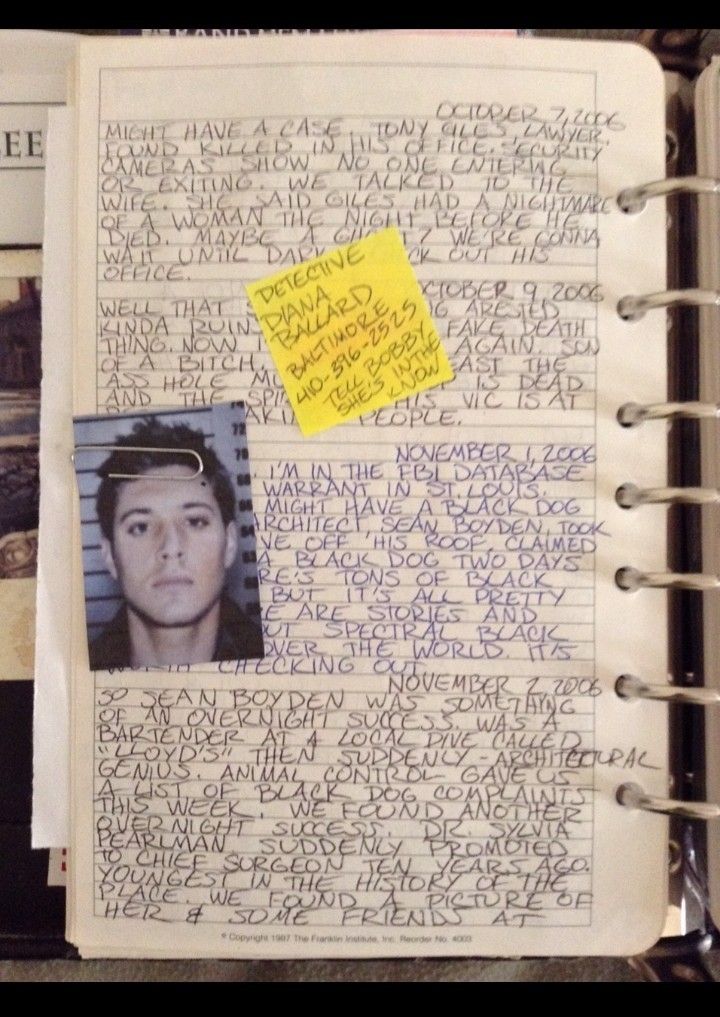 OCTOBER 7, 2006
MIGHT HAVE A CASE. TONY GILES, LAWYER,
FOUND KILLED IN HIS OFFICE. SECURITY
CAMERAS SHOW NO ONE ENTERING
OR EXITING. WE TALKED TO THE
WIFE. SHE SAID GILES HAD A NIGHTMARE
OF A WOMAN THE NIGHT BEFORE HE
DIED. MAYBE A GHOST? WE'RE GONNA
WAIT UNTIL DARK CK OUT HIS
OFFICE.
OCTOBER 9, 2006
WELL THAT S G ARESTED
KINDA RUIN FAKE DEATH
THING. NOW AGAIN. SON
OF A BITCH. EAST THE
ASS HOLE MU IS DEAD
AND THE SPI HIS VIC IS AT
PEOPLE.
DETECTIVE
DIANA
BALLARD
BALTIMORE
410-396-2525
TELL BOBBY
SHE'S IN THE
KNOW
NOVEMBER 1, 2006
I'M IN THE FBI DATABASE
WARRANT IN ST. LOUIS.
MIGHT HAVE A BLACK DOG
ARCHITECT, SEAN BOYDEN, TOOK
VE OFF HIS ROOF. CLAIMED
A BLACK DOG TWO DAYS
RE'S TONS OF BLACK
BUT IT'S ALL PRETTY
E ARE STORIES AND
OUT SPECTRAL BLACK
OVER THE WORLD. IT'S
WORTH CHECKING OUT
NOVEMBER 2, 2006
SO SEAN BOYDEN WAS SOMETHING
OF AN OVERNIGHT SUCCESS. WAS A
BARTENDER AT A LOCAL DIVE CALLED
"LLOYD'S" THEN SUDDENLY - ARCHITECTURAL
GENIUS. ANIMAL CONTROL GAVE US
A LIST OF BLACK DOG COMPLAINTS
THIS WEEK. WE FOUND ANOTHER
OVERNIGHT SUCCESS. DR. SYLVIA
PEARLMAN SUDDENLY PROMOTED
TO CHIEF SURGEON TEN YEARS AGO.
YOUNGEST IN THE HISTORY OF THE
PLACE. WE FOUND A PICTURE OF
HER & SOME FRIENDS AT
© Copyright 1987 The Franklin Institute, Inc. Reorder No. 4003
EE
72
70